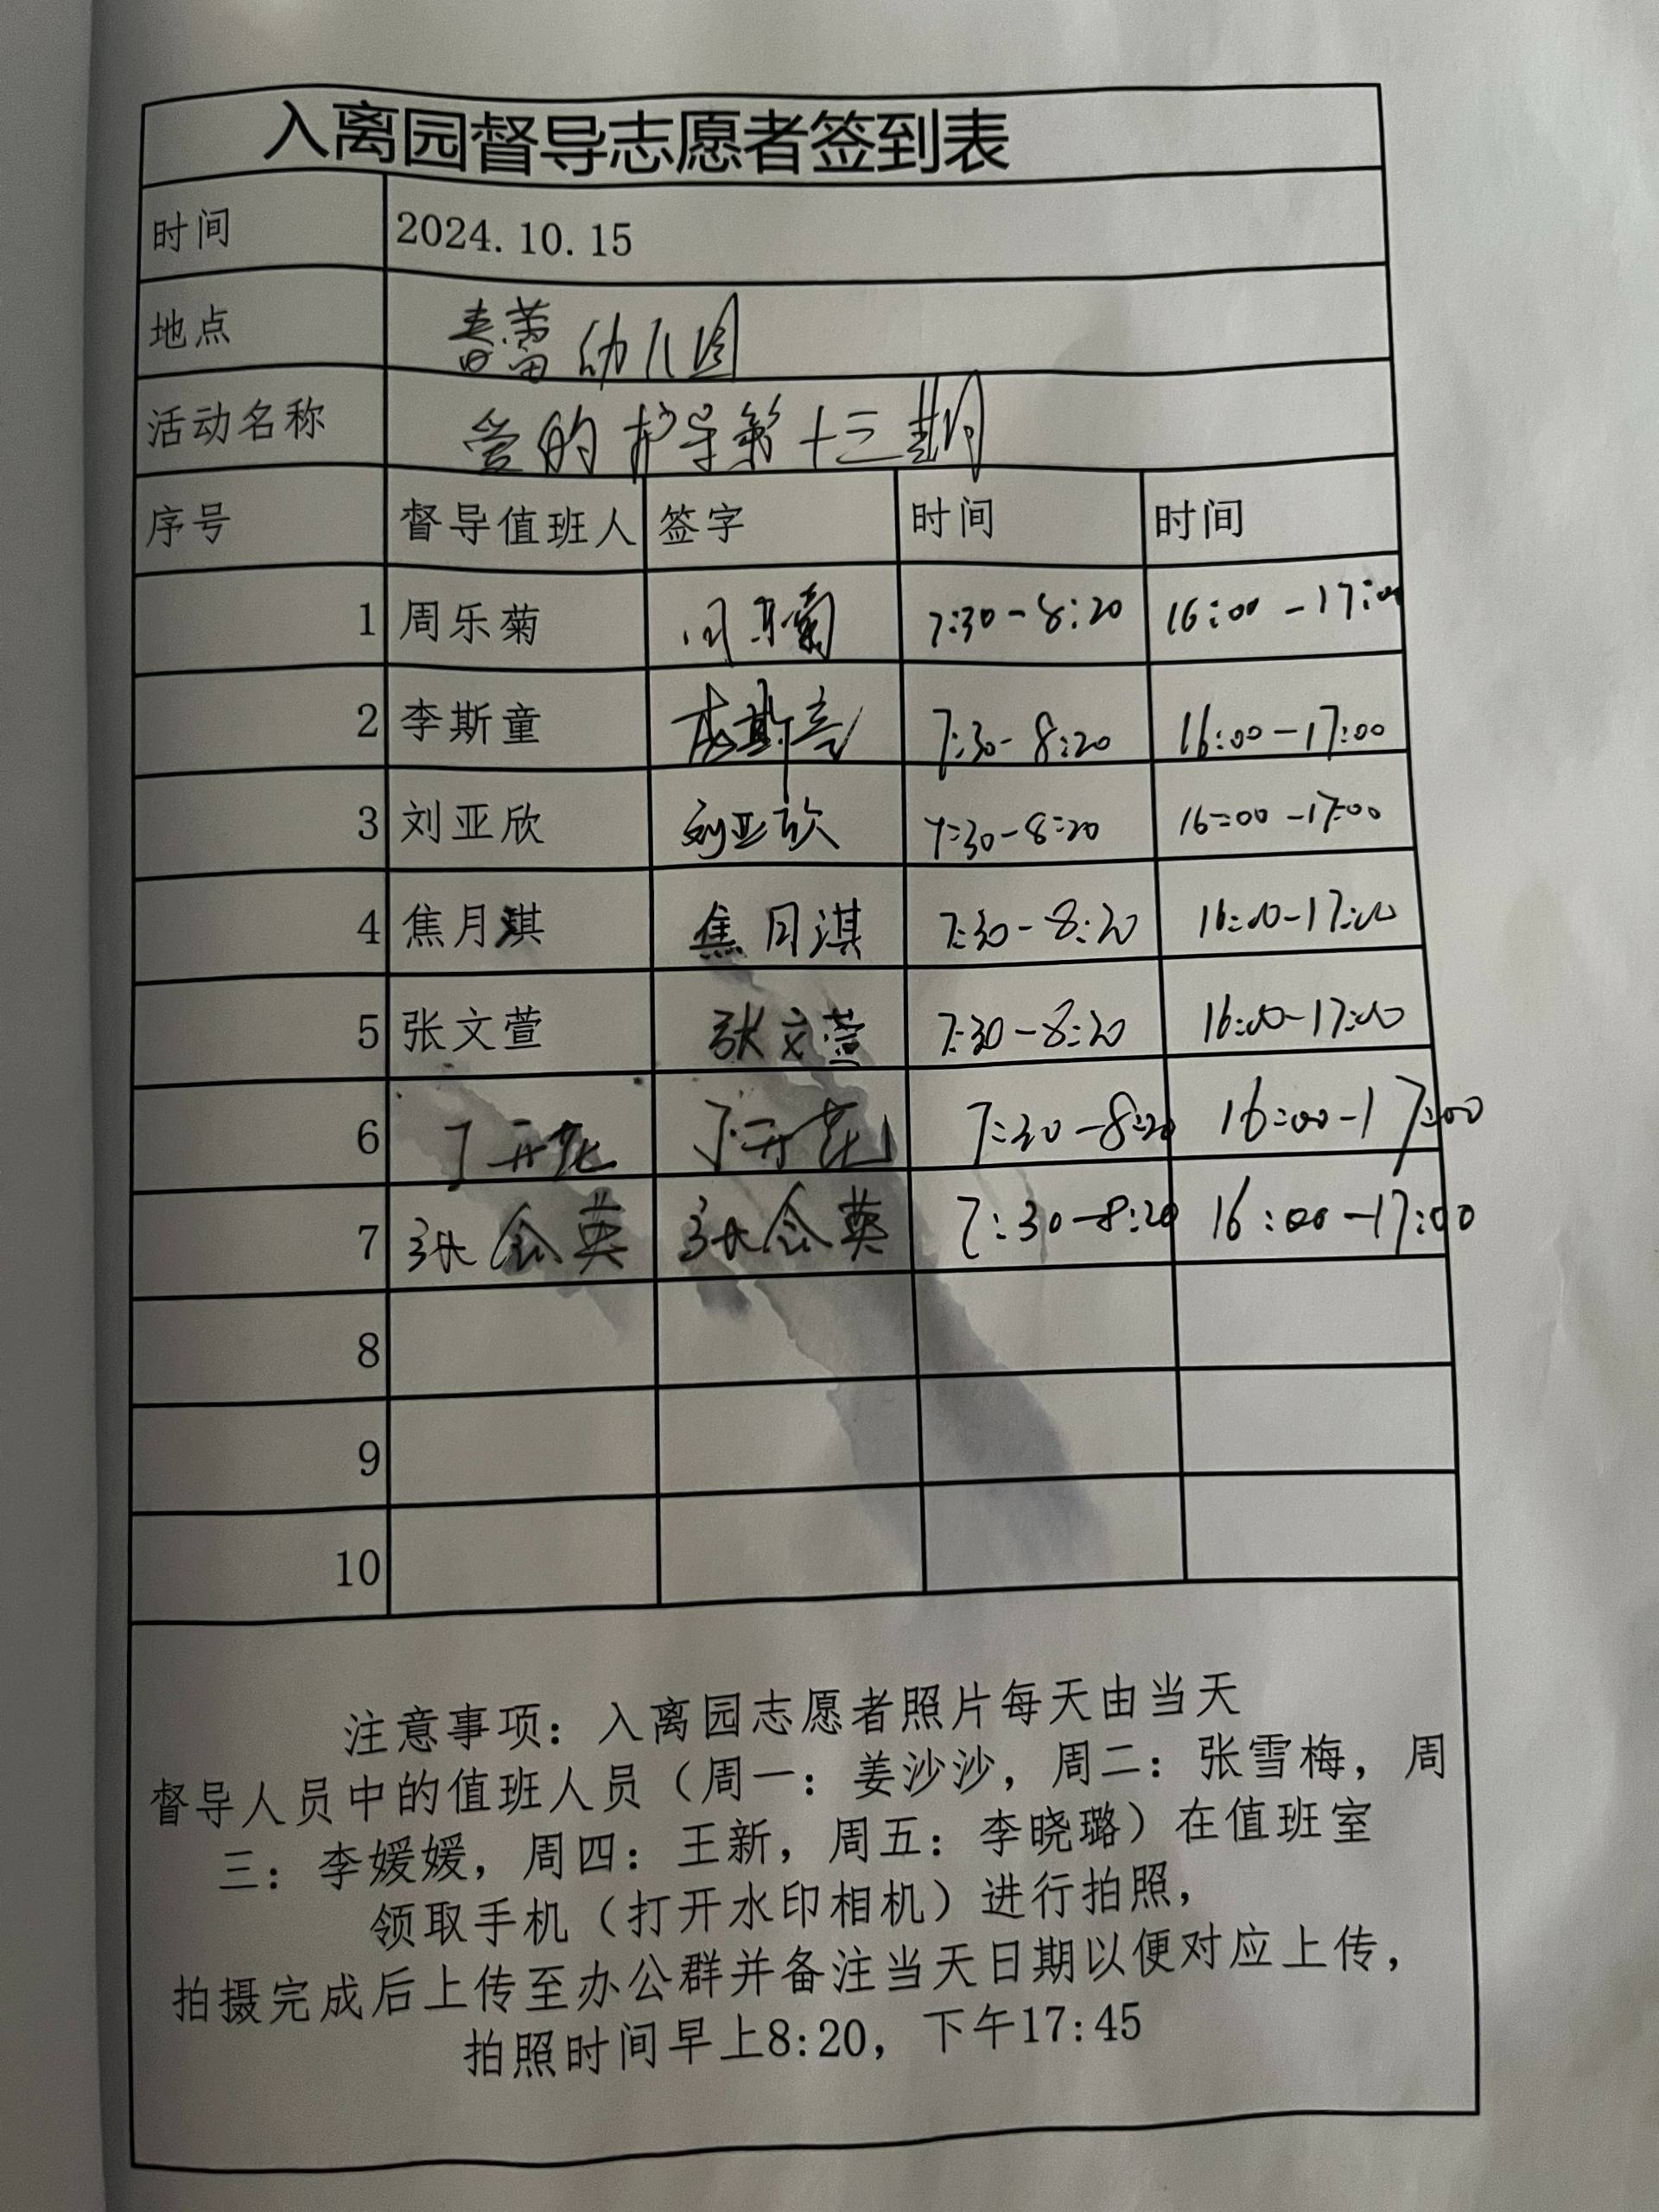 入离园督导志愿者签到表
时间 2024.10.15
地点 春蕾幼儿园
活动名称 爱的护导第十三期
序号 督导值班人 签字 时间 时间
1 周乐菊 周乐菊 7:30-8:20 16:00-17:00
2 李斯童 李斯童 7:30-8:20 16:00-17:00
3 刘亚欣 刘亚欣 7:30-8:20 16:00-17:00
4 焦月淇 焦月淇 7:30-8:20 16:00-17:00
5 张文萱 张文萱 7:30-8:20 16:00-17:00
6 丁开花 丁开花 7:30-8:20 16:00-17:00
7 张会英 张会英 7:30-8:20 16:00-17:00
8
9
10
注意事项：入离园志愿者照片每天由当天
督导人员中的值班人员（周一：姜沙沙，周二：张雪梅，周
三：李媛媛，周四：王新，周五：李晓璐）在值班室
领取手机（打开水印相机）进行拍照，
拍摄完成后上传至办公群并备注当天日期以便对应上传，
拍照时间早上8:20，下午17:45